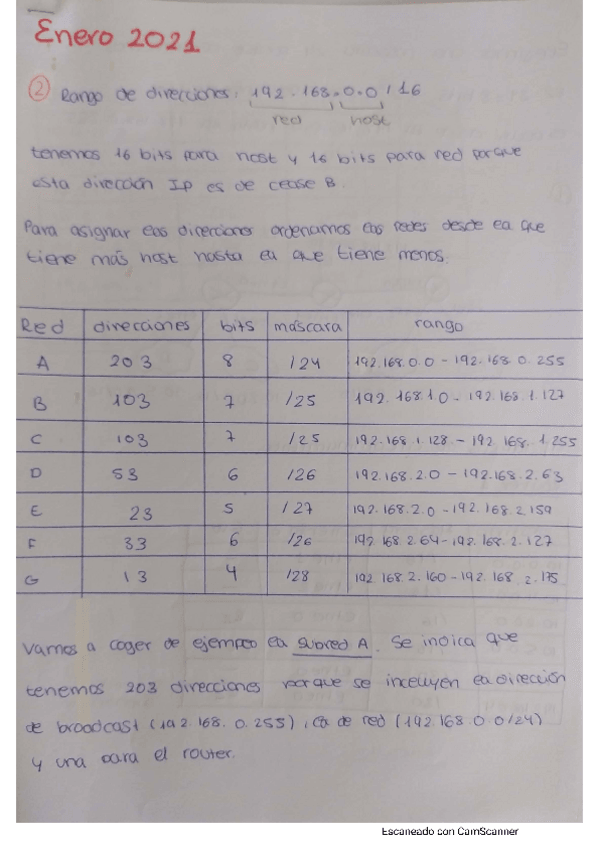 Enero 2021
② Rango de direcciones: 192.168.0.0/16
red host
tenemos 16 bits para host y 16 bits para red porque
esta dirección Ip es de clase B.
Para asignar las direcciones ordenamos las redes desde la que
tiene más host hasta la que tiene menos.
Red direcciones bits máscara rango
A 203 8 /24 192.168.0.0 - 192.168.0.255
B 103 7 /25 192.168.1.0 - 192.168.1.127
C 103 7 /25 192.168.1.128 - 192.168.1.255
D 53 6 /26 192.168.2.0 - 192.168.2.63
E 23 5 /27 192.168.2.0 - 192.168.2.159
F 33 6 /26 192.168.2.64 - 192.168.2.127
G 13 4 /28 192.168.2.160 - 192.168.2.175
Vamos a coger de ejemplo la subred A. Se indica que
tenemos 203 direcciones porque se incluyen la dirección
de broadcast (192.168.0.255), la de red (192.168.0.0/24)
y una para el router.
Escaneado con CamScanner